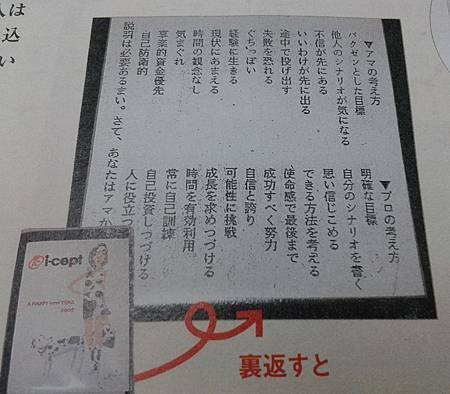 ▼アマの考え方
バクゼンとした目標
他人のシナリオが気になる
不信が先にある
いいわけが先に出る
途中で投げ出す
失敗を恐れる
ぐちっぽい
経験に生きる
現状にあまえる
時間の観念なし
気まぐれ
享楽的資金優先
自己防衛的
▼プロの考え方
明確な目標
自分のシナリオを書く
思い信じこめる
できる方法を考える
使命感で最後まで
成功すべく努力
自信と誇り
可能性に挑戦
成長を求めつづける
時間を有効利用
常に自己訓練
自己投資しつづける
人に役立つ
説明は必要あるまい。さて、あなたはアマか
人は
込
い
i-cept
A HAPPY NEW YEAR
裏返すと